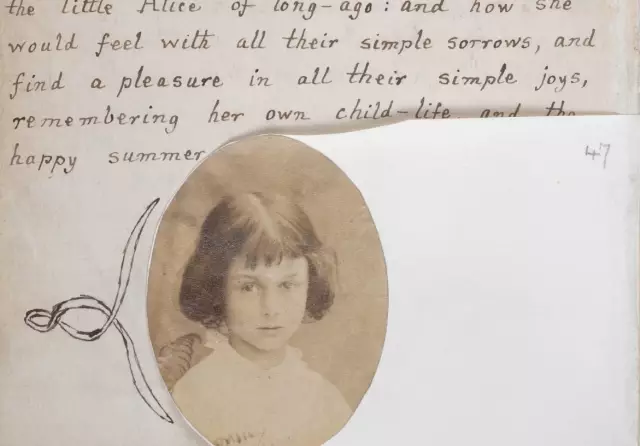 the little Alice of long-ago: and how she
would feel with all their simple sorrows, and
find a pleasure in all their simple joys,
remembering her own child-life, and the
happy summer
47